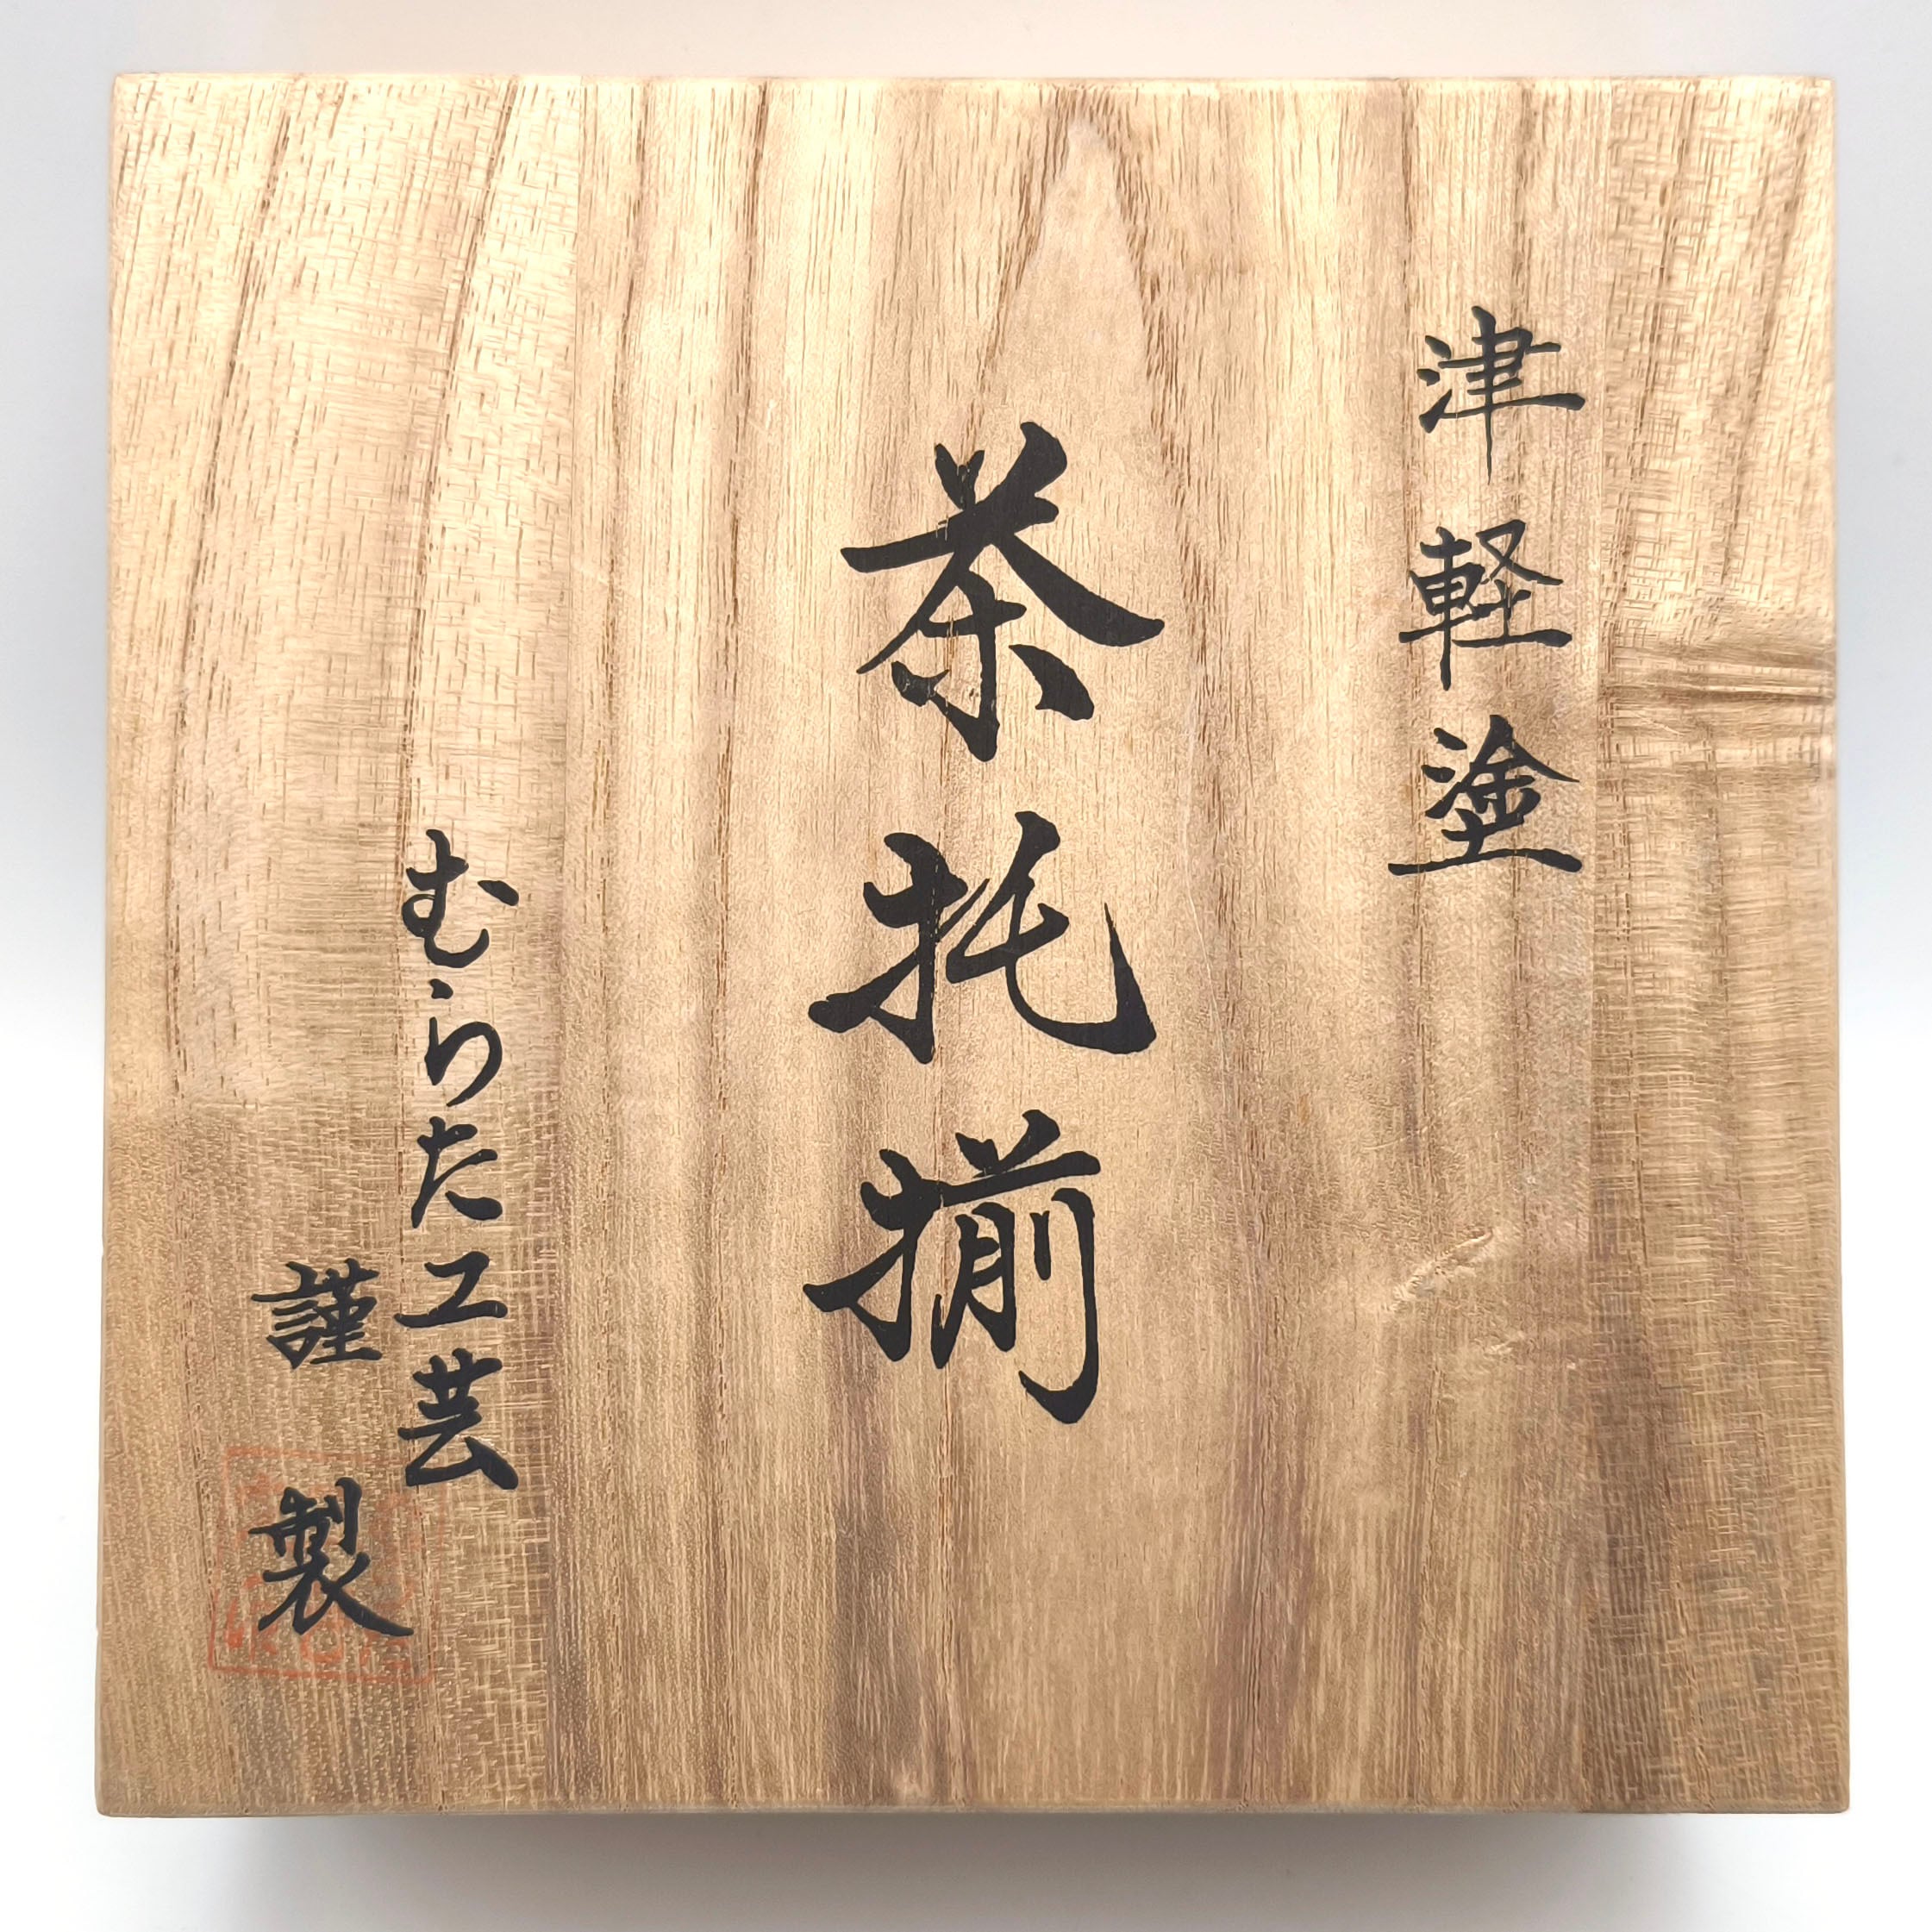 津軽塗
茶托揃
むらた工芸
謹製